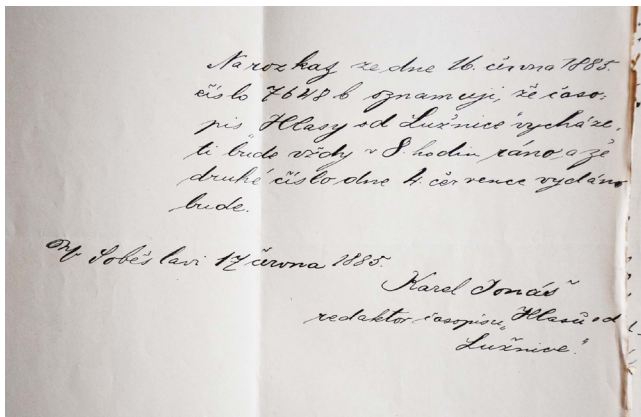 Na rozkaz ze dne 16. června 1885.
číslo 7648 b oznamuji, že časo-
pis „Hlasy od Lužnice" vycháze-
ti bude vždy v 8. hodin ráno, a že
druhé číslo dne 4. července vydáno
bude.
V Soběslavi 17 června 1885.
Karel Jonáš
redaktor časopisu „Hlasů od
Lužnice."